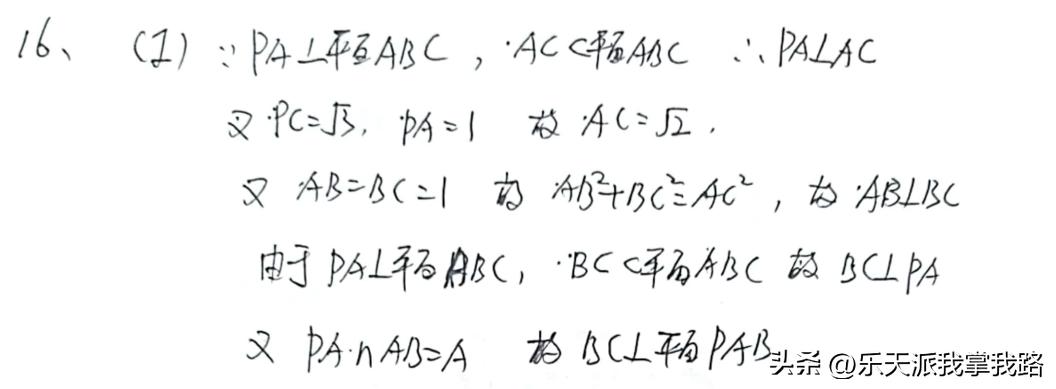 16、(I) ∵PA⊥平面ABC, AC⊂平面ABC ∴PA⊥AC
又PC=√3, PA=1 故 AC=√2.
又 AB=BC=1 故 AB²+BC²=AC², 故 AB⊥BC
由于PA⊥平面ABC, BC⊂平面ABC 故 BC⊥PA
又 PA∩AB=A 故 BC⊥平面PAB
头条 @乐天派我掌我路